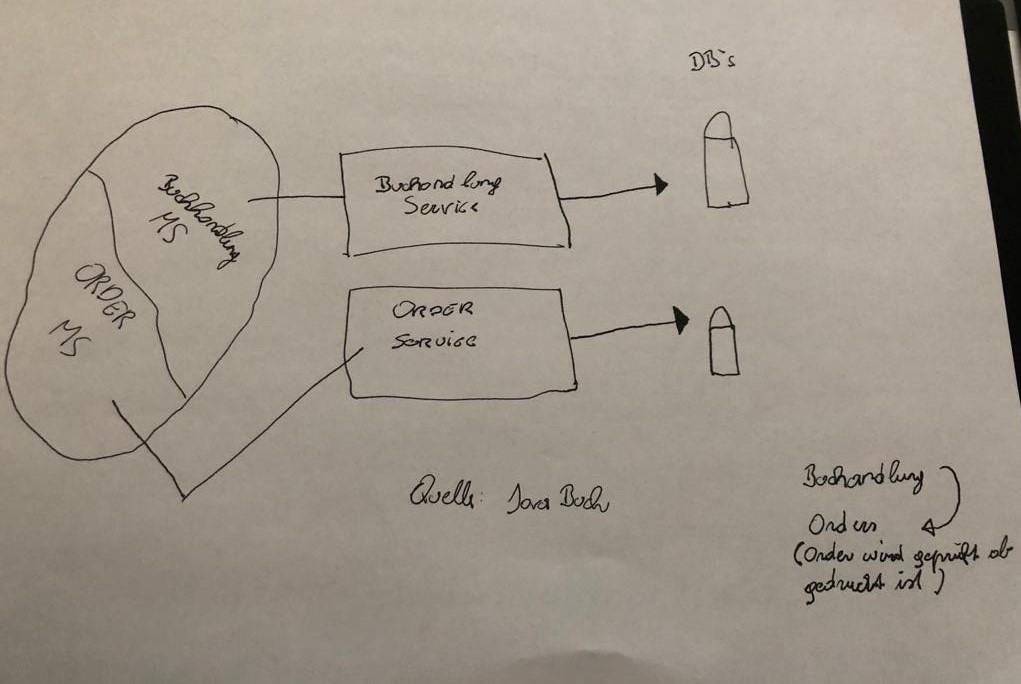 DB's
Buchhandlung
MS
Buchandlung
Service
ORDER
MS
ORDER
Service
Quelle: Java Buch
Buchandlung
Order
(Order wird geprüft ob
gedruckt ist)